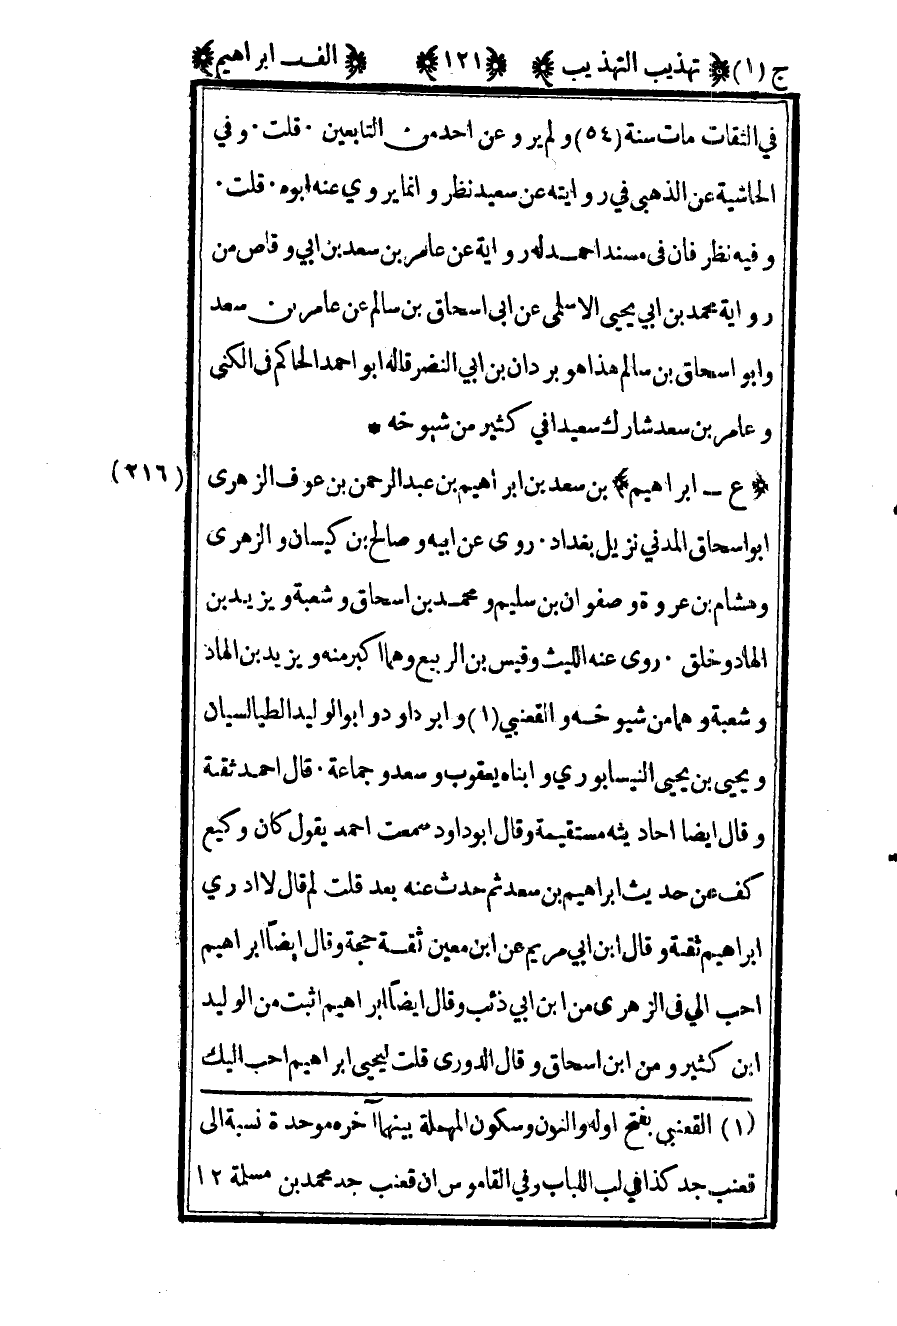 ج (١) ﴿ تهذيب التهذيب ﴾ ﴿ ١٢١ ﴾ ﴿ الف ـ ابراهيم ﴾
في الثقات مات سنة (٥٤) و لم يرو عن احد من التابعين ٠ قلت ٠ و في
الحاشية عن الذهبي في روايته عن سعيد نظر و انما يروي عنه ابوه ٠ قلت ٠
و فيه نظر فان فى مسند احمد له رواية عن عامر بن سعد بن ابي وقاص من
رواية محمد بن ابي يحيى الاسلمى عن ابى اسحاق بن سالم عن عامر بن سعد
وابو اسحاق بن سالم هذا هو بردان بن ابي النضر قاله ابو احمد الحاكم فى الكنى
و عامر بن سعد شارك سعيدا في كثير من شيوخه *
﴿ ع ـ ابراهيم ﴾ بن سعد بن ابراهيم بن عبد الرحمن بن عوف الزهرى (٢١٦)
ابو اسحاق المدني نزيل بغداد ٠ روى عن ابيه و صالح بن كيسان و الزهرى
و هشام بن عروة و صفوان بن سليم و محمد بن اسحاق و شعبة و يزيد بن
الهاد وخلق ٠ روى عنه الليث وقيس بن الربيع وهما اكبر منه و يزيد بن الهاد
و شعبة و هما من شيوخه و القعنبي (١) و ابو داود و ابو الوليد الطيالسيان
و يحيى بن يحيى النيسابوري و ابناه يعقوب و سعد و جماعة ٠ قال احمد ثقة
و قال ايضا احاديثه مستقيمة وقال ابو داود سمعت احمد يقول كان وكيع
كف عن حديث ابراهيم بن سعد ثم حدث عنه بعد قلت لم قال لا ادري
ابراهيم ثقة و قال ابن ابي مريم عن ابن معين ثقة حجة وقال ايضاً ابراهيم
احب الي فى الزهرى من ابن ابي ذئب وقال ايضاً ابراهيم اثبت من الوليد
ابن كثير و من ابن اسحاق و قال الدورى قلت ليحيى ابراهيم احب اليك
(١) القعنبي بفتح اوله والنون وسكون المهملة بينهما آخره موحدة نسبة الى
قعنب جد كذا في لب اللباب وفي القاموس ان قعنب جد محمد بن مسلمة ١٢